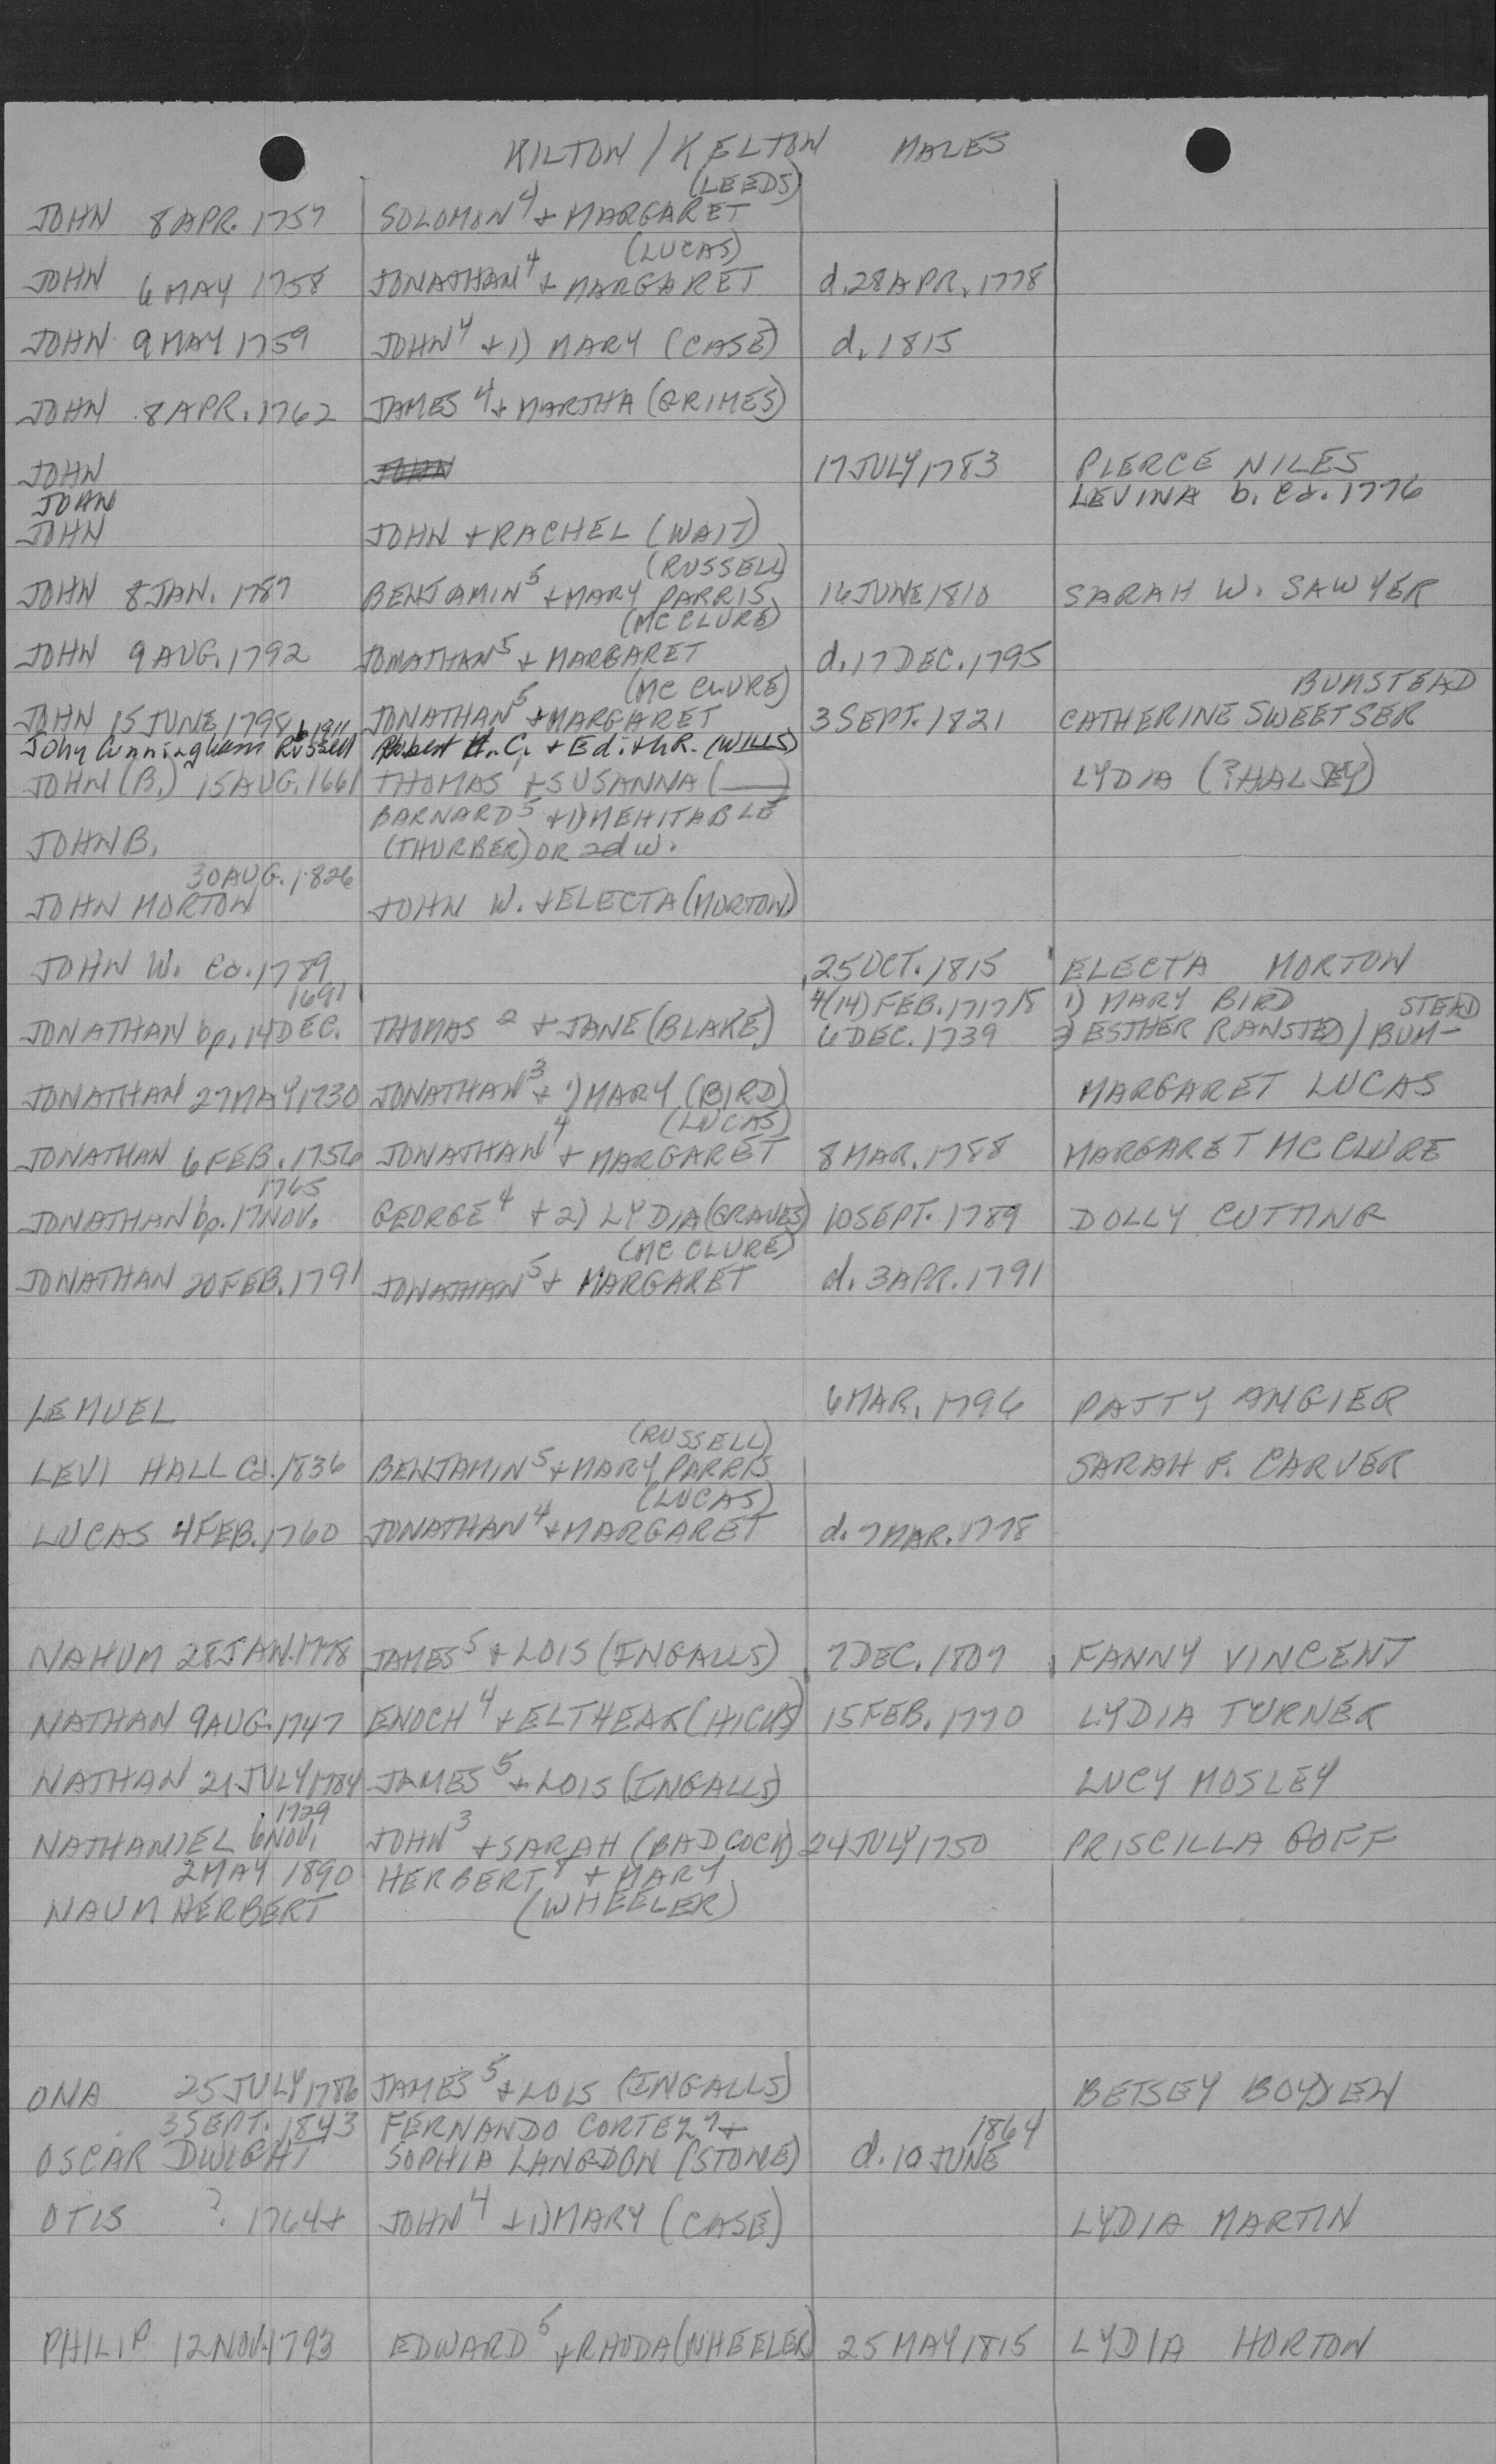 KILTON / KELTON MALES
(LEEDS)
JOHN 8 APR. 1757 SOLOMON⁴ + MARGARET
(LUCAS)
JOHN 6 MAY 1758 JONATHAN⁴ + MARGARET d. 28 APR. 1778
JOHN 9 MAY 1759 JOHN⁴ + 1) MARY (CASE) d. 1815
JOHN 8 APR. 1762 JAMES⁴ + MARTHA (GRIMES)
JOHN JOHN 17 JULY 1783 PIERCE NILES
JOHN LEVINA b. Ca. 1776
JOHN JOHN + RACHEL (WAIT)
(RUSSELL)
JOHN 8 JAN. 1787 BENJAMIN⁵ + MARY PARRIS 16 JUNE 1810 SARAH W. SAWYER
(MC CLURE)
JOHN 9 AUG. 1792 JONATHAN⁵ + MARGARET d. 17 DEC. 1795
(MC CLURE) BUMSTEAD
JOHN 15 JUNE 1798 JONATHAN⁵ + MARGARET 3 SEPT. 1821 CATHERINE SWEETSER
John Cunningham Russell b 1911 Robert H. C. + Edith R. (WILLS)
JOHN (B.) 15 AUG. 1661 THOMAS' + SUSANNA (___) LYDIA (?HALSEY)
BARNARD⁵ + 1) MEHITABLE
JOHN B. (THURBER) OR 2d W.
30 AUG. 1826
JOHN MORTON JOHN W. + ELECTA (MORTON)
JOHN W. Ca. 1789 25 OCT. 1815 ELECTA MORTON
1691 4(14) FEB. 1717/8 1) MARY BIRD STEAD
JONATHAN bp. 14 DEC. THOMAS² + JANE (BLAKE) 6 DEC. 1739 2) ESTHER RANSTED / BUM-
JONATHAN 27 MAY 1730 JONATHAN³ + 1) MARY (BIRD) MARGARET LUCAS
(LUCAS)
JONATHAN 6 FEB. 1756 JONATHAN⁴ + MARGARET 8 MAR. 1788 MARGARET MC CLURE
1765
JONATHAN bp. 17 NOV. GEORGE⁴ + 2) LYDIA (GRAVES) 10 SEPT. 1789 DOLLY CUTTING
(MC CLURE)
JONATHAN 20 FEB. 1791 JONATHAN⁵ + MARGARET d. 3 APR. 1791
LEMUEL 6 MAR. 1796 PATTY ANGIER
(RUSSELL)
LEVI HALL Ca. 1836 BENJAMIN⁵ + MARY PARRIS SARAH P. CARVER
(LUCAS)
LUCAS 4 FEB. 1760 JONATHAN⁴ + MARGARET d. 7 MAR. 1778
NAHUM 28 JAN. 1778 JAMES⁵ + LOIS (INGALLS) 7 DEC. 1807 FANNY VINCENT
NATHAN 9 AUG. 1747 ENOCH⁴ + ELTHEAR (HICKS) 15 FEB. 1770 LYDIA TURNER
NATHAN 21 JULY 1784 JAMES⁵ + LOIS (INGALLS) LUCY MOSLEY
1729
NATHANIEL 6 NOV. JOHN³ + SARAH (BADCOCK) 24 JULY 1750 PRISCILLA GOFF
2 MAY 1890 HERBERT⁸ + MARY
NAUM HERBERT (WHEELER)
ONA 25 JULY 1786 JAMES⁵ + LOIS (INGALLS) BETSEY BOYDEN
3 SEPT. 1843 FERNANDO CORTEZ⁷ + 1864
OSCAR DWIGHT SOPHIA LANGDON (STONE) d. 10 JUNE
OTIS ? 1764+ JOHN⁴ + 1) MARY (CASE) LYDIA MARTIN
PHILIP 12 NOV. 1793 EDWARD⁵ + RHODA (WHEELER) 25 MAY 1815 LYDIA HORTON